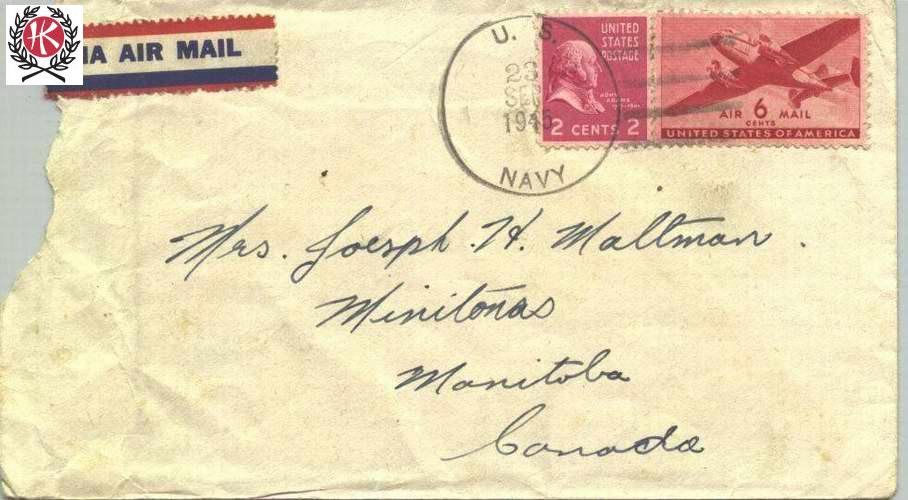 IA AIR MAIL
UNITED
STATES
POSTAGE
2 CENTS 2
AIR 6 MAIL
CENTS
UNITED STATES OF AMERICA
U. S.
23
1945
NAVY
Mrs. Joesph. H. Maltman.
Minitonas
Manitoba
Canada